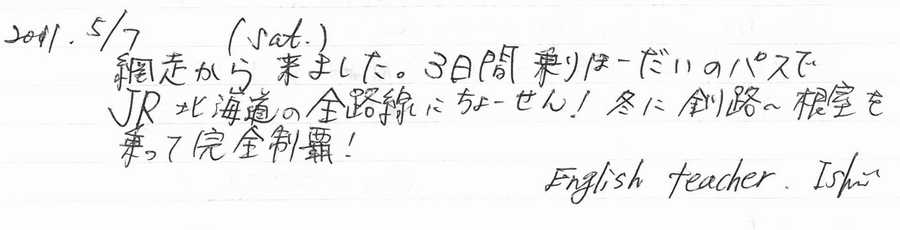 2011. 5/7 (Sat.)
網走から来ました。3日間 乗りほーだいのパスで
JR北海道の全路線にちょーせん! 冬に釧路~根室を
乗って完全制覇!
English teacher. Ishii